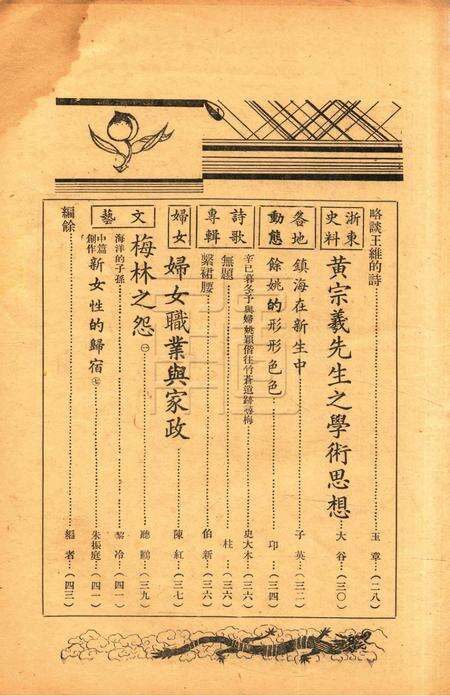 略談王維的詩……玉章…(二八)
浙東史料
黃宗羲先生之學術思想……大谷…(三〇)
各地動態
鎮海在新生中……子英…(三二)
餘姚的形形色色……印…(三四)
詩歌專輯
辛巳暮冬予與婦姚穎偕往竹蒼道跡尋梅……史大木…(三六)
無題……柱…(三六)
繫裙腰……伯新…(三六)
婦女
婦女職業與家政……陳紅…(三七)
文藝
梅林之怨㊀……聽鸝…(三九)
海洋的子孫……黎冷…(四一)
中篇創作 新女性的歸宿㊆……朱振庭…(四一)
編餘……編者…(四三)